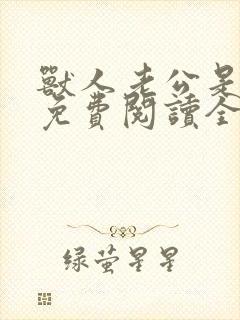 獸人老公是
免費閱讀全
綠萤星星